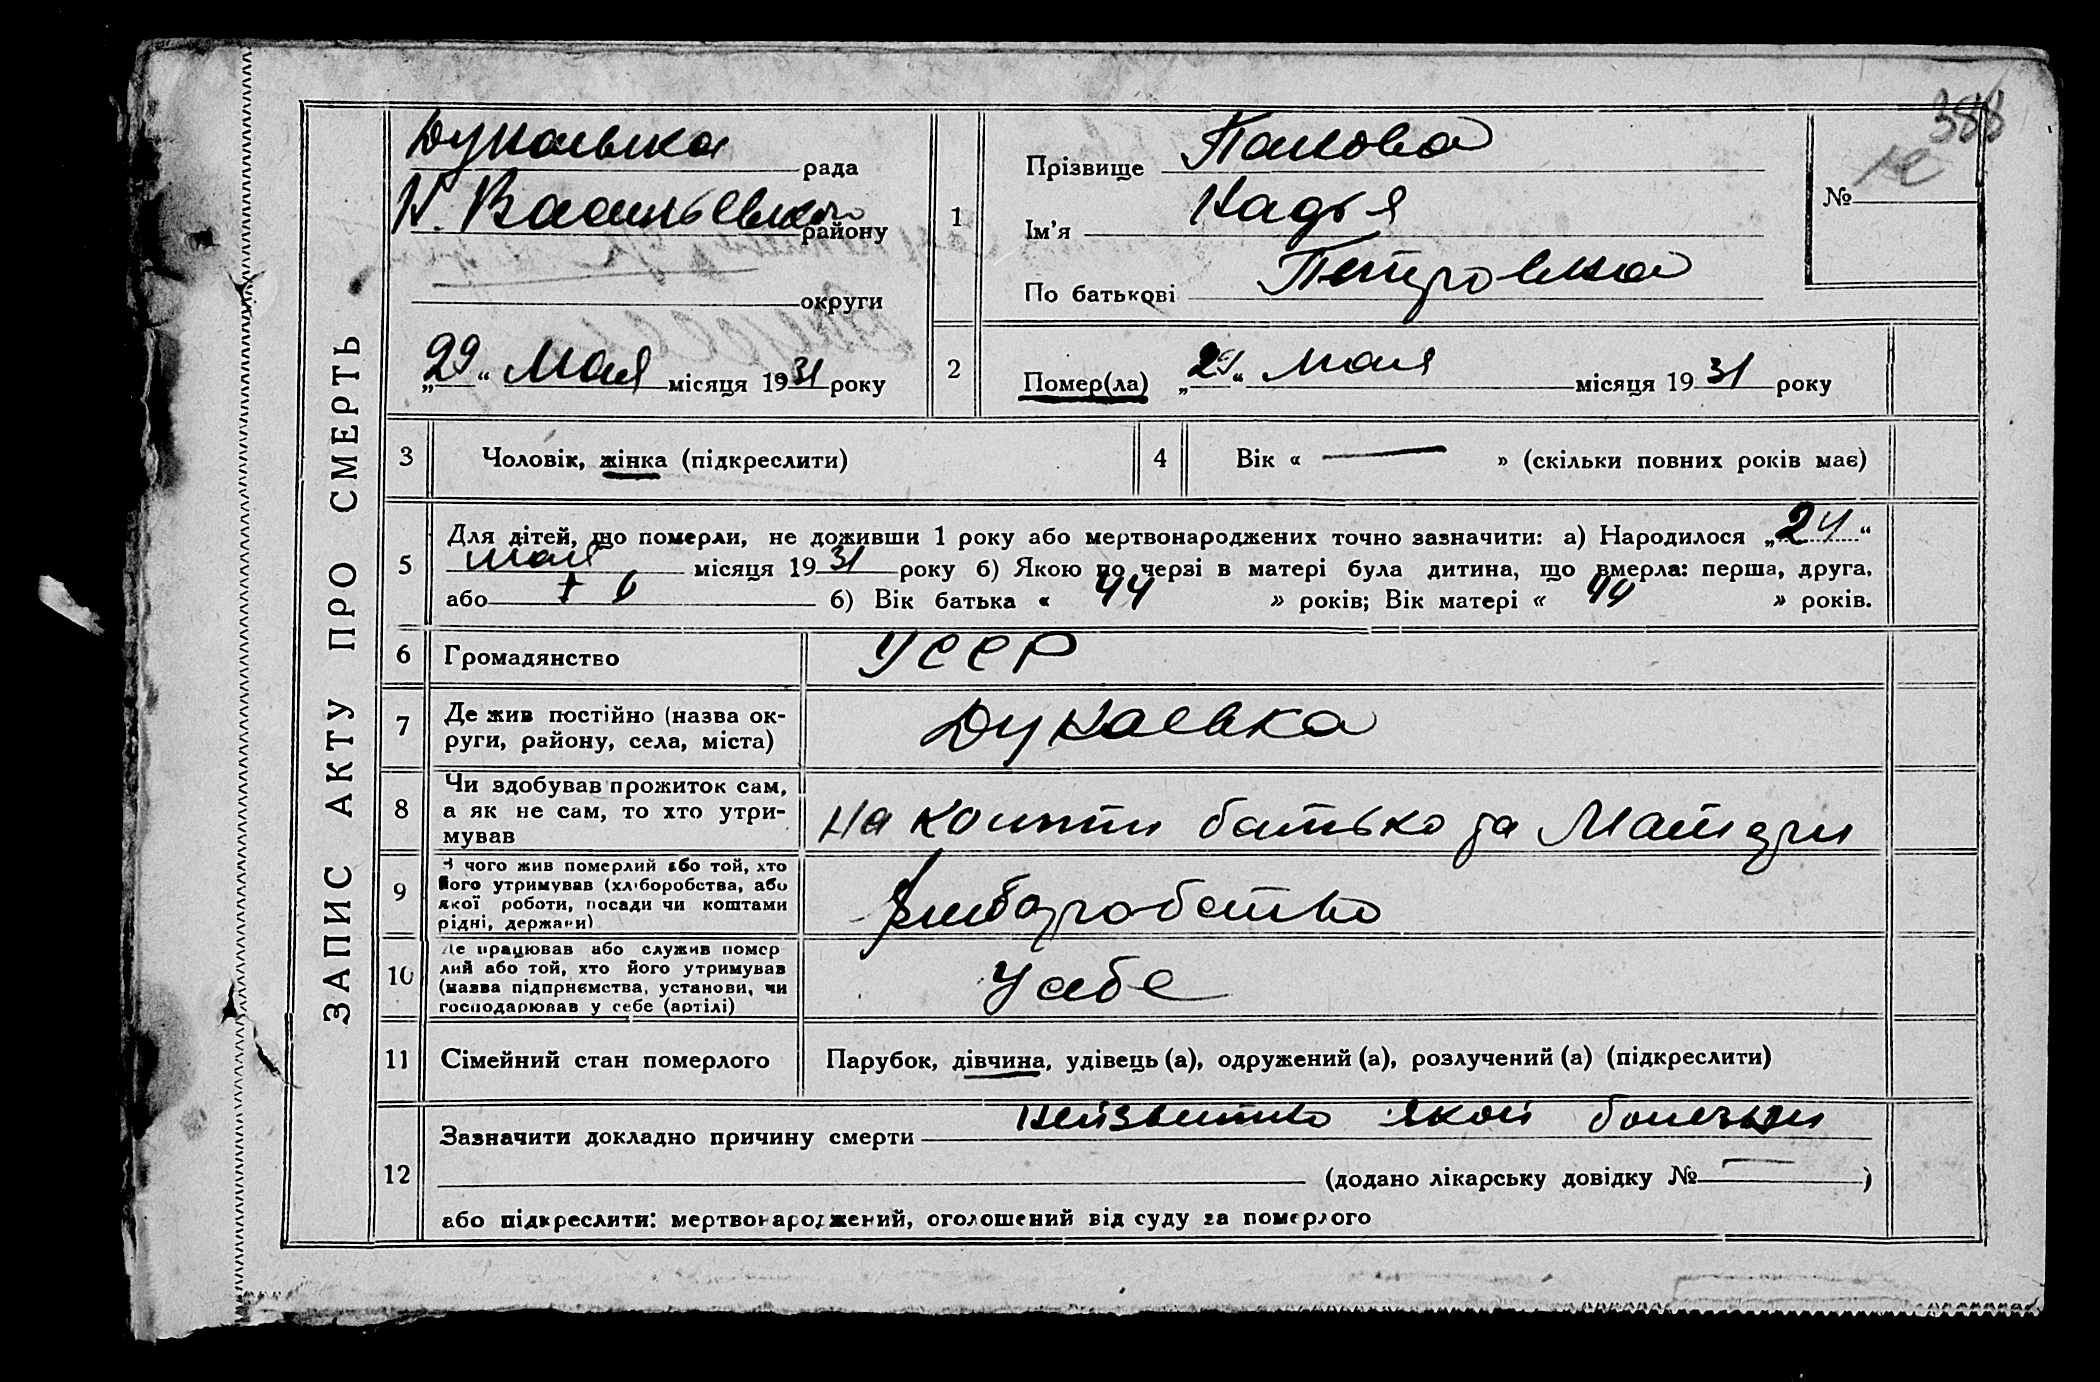 388
ЗАПИС АКТУ ПРО СМЕРТЬ
Дунаевка рада
Н. Васильевского району
округи
„29“ Мая місяця 1931 року
1
Прізвище Панова
Ім'я Надья
По батькові Петровна
№
2
Помер(ла) „29“ мая місяця 1931 року
3 Чоловік, жінка (підкреслити)
4 Вік « — » (скільки повних років має)
5 Для дітей, що померли, не доживши 1 року або мертвонароджених точно зазначити: а) Народилося „24“
мая місяця 1931 року б) Якою по черзі в матері була дитина, що вмерла: перша, друга,
або б) Вік батька « 44 » років; Вік матері « 44 » років.
6 Громадянство УССР
7 Де жив постійно (назва ок-
руги, району, села, міста) Дунаевка
8 Чи здобував прожиток сам,
а як не сам, то хто утри-
мував
на кошти батько та Матери
9 З чого жив померлий або той, хто
його утримував (хліборобства, або
якої роботи, посади чи коштами
рідні, держави)
Хлиборобство
10 Де працював або служив помер
лий або той, хто його утримував
(назва підприємства, установи, чи
господарював у себе (артілі)
У себе
11 Сімейний стан померлого Парубок, дівчина, удівець (а), одружений (а), розлучений (а) (підкреслити)
12 Зазначити докладно причину смерти якой болезни
(додано лікарську довідку № — )
або підкреслити: мертвонароджений, оголошений від суду за померлого